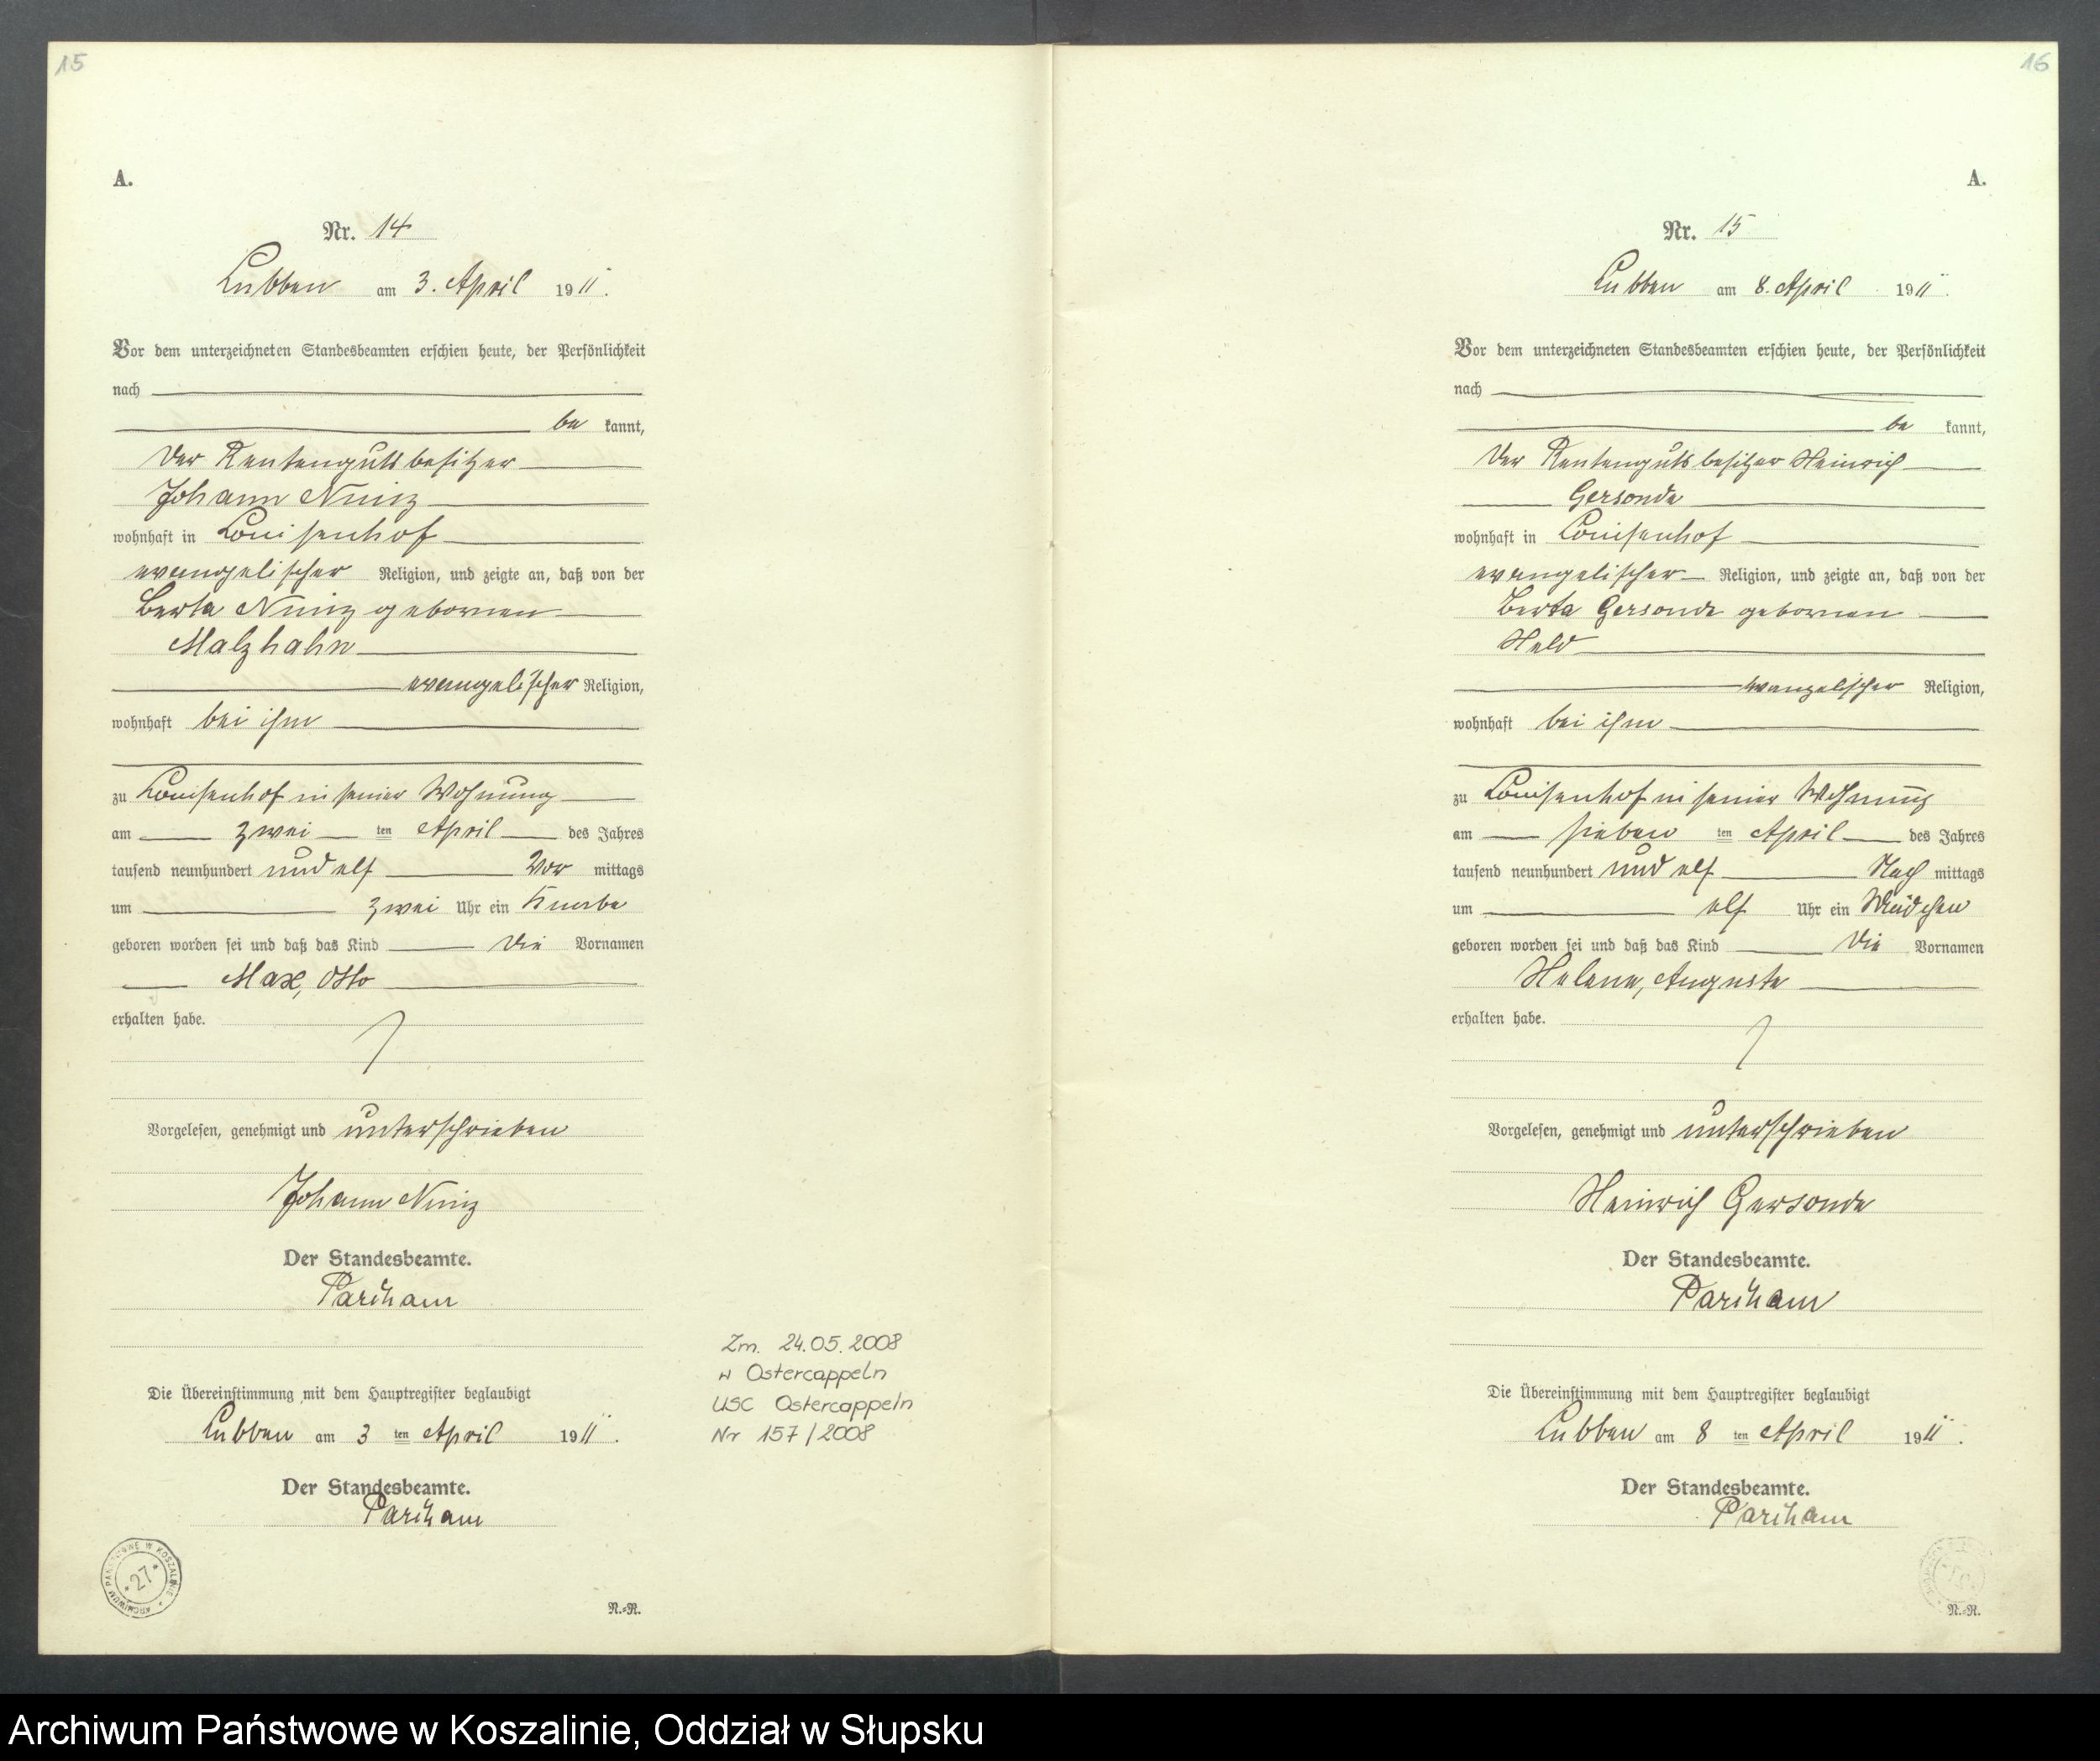 15
A.
Nr. 14
Lubben am 3. April 1911.
Vor dem unterzeichneten Standesbeamten erschien heute, der Persönlichkeit
nach
be kannt,
der Rentengutsbesitzer
Johann
wohnhaft in Louisenhof
evangelischer Religion, und zeigte an, daß von der
Berta geborenen
Malzhahn
evangelischer Religion,
wohnhaft bei ihm
zu Louisenhof in seiner Wohnung
am zwei ten April des Jahres
tausend neunhundert und elf Vor mittags
um zwei Uhr ein Knabe
geboren worden sei und daß das Kind die Vornamen
Max, Otto
erhalten habe.
Vorgelesen, genehmigt und unterschrieben
Johann
Der Standesbeamte.
Die Übereinstimmung mit dem Hauptregister beglaubigt
Lubben am 3 ten April 1911.
Der Standesbeamte.
Zm. 24.05.2008
w Ostercappeln
USC Ostercappeln
Nr 157/2008
ARCHIWUM PAŃSTWOWE W KOSZALINIE
* 27 *
N.=R.
16
A.
Nr. 15
Lubben am 8. April 1911.
Vor dem unterzeichneten Standesbeamten erschien heute, der Persönlichkeit
nach
be kannt,
der Rentengutsbesitzer Heinrich
Gersonde
wohnhaft in Louisenhof
evangelischer Religion, und zeigte an, daß von der
Berta Gersonde geborenen
Held
evangelischer Religion,
wohnhaft bei ihm
zu Louisenhof in seiner Wohnung
am sieben ten April des Jahres
tausend neunhundert und elf Nach mittags
um elf Uhr ein Mädchen
geboren worden sei und daß das Kind die Vornamen
Helene, Auguste
erhalten habe.
Vorgelesen, genehmigt und unterschrieben
Heinrich Gersonde
Der Standesbeamte.
Die Übereinstimmung mit dem Hauptregister beglaubigt
Lubben am 8 ten April 1911.
Der Standesbeamte.
N.=R.
Archiwum Państwowe w Koszalinie, Oddział w Słupsku